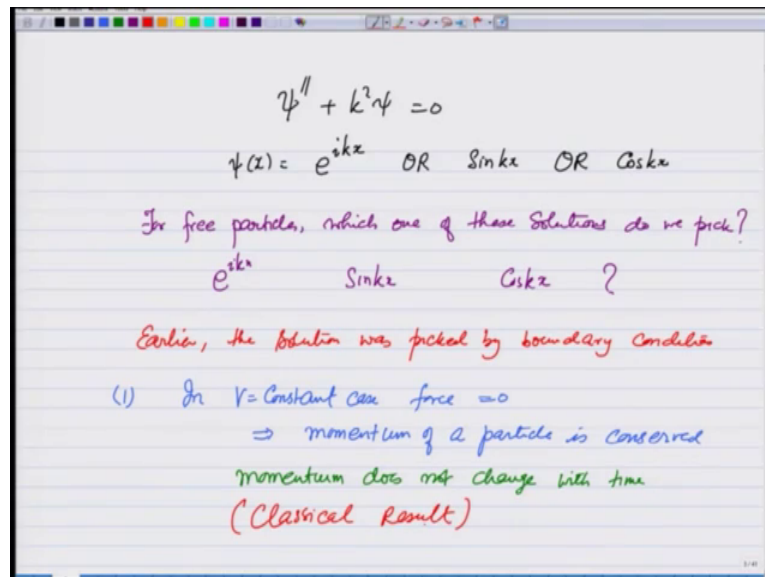 ψ'' + k²ψ = 0
ψ(x) = e^{ikx} OR Sinkx OR Coskx
For free particles, which one of these solutions do we pick?
e^{ikx} Sinkx Coskx ?
Earlier, the solution was picked by boundary condition
(1) In V = Constant case force = 0
⇒ momentum of a particle is conserved
momentum does not change with time
(Classical Result)